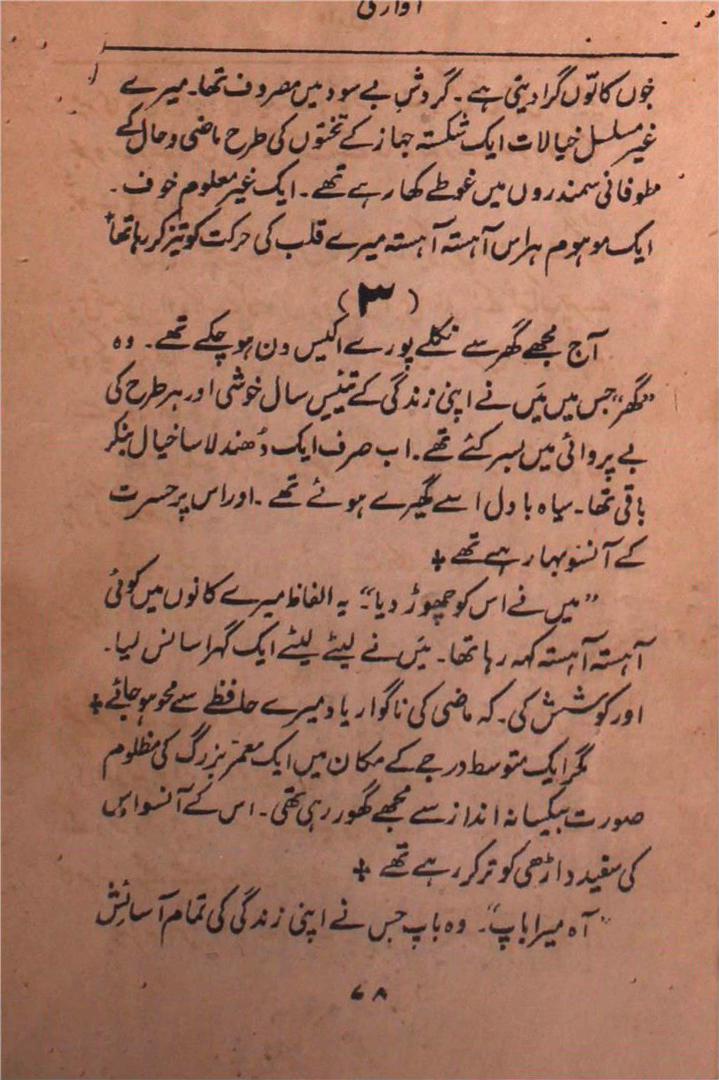 آوارگی
خوں کا توں گرا دیتی ہے۔ گردشِ بے سود میں مصروف تھا۔ میرے
غیر مسلسل خیالات ایک شکستہ جہاز کے تختوں کی طرح ماضی و حال کے
طوفانی سمندروں میں غوطے کھا رہے تھے۔ ایک غیر معلوم خوف۔
ایک موہوم ہراس آہستہ آہستہ میرے قلب کی حرکت کو تیز کر رہا تھا+
(۳)
آج مجھے گھر سے نکلے پورے اکیس دن ہو چکے تھے۔ وہ
”گھر“ جس میں مَیں نے اپنی زندگی کے تیئیس سال خوشی اور ہر طرح کی
بے پروائی میں بسر کئے تھے۔ اب صرف ایک دُھندلا سا خیال بنکر
باقی تھا۔ سیاہ بادل اسے گھیرے ہوئے تھے۔ اور اس پر حسرت
کے آنسو بہا رہے تھے +
”میں نے اس کو چھوڑ دیا“۔ یہ الفاظ میرے کانوں میں کوئی
آہستہ آہستہ کہہ رہا تھا۔ مَیں نے لیٹے لیٹے ایک گہرا سانس لیا۔
اور کوشش کی۔ کہ ماضی کی ناگوار یاد میرے حافظے سے محو ہو جائے +
مگر ایک متوسط درجے کے مکان میں ایک معمّر بزرگ کی مظلوم
صورت بیکسانہ انداز سے مجھے گھور رہی تھی۔ اس کے آنسو اس
کی سفید داڑھی کو تر کر رہے تھے +
”آہ میرا باپ“۔ وہ باپ جس نے اپنی زندگی کی تمام آسائش
۶۸